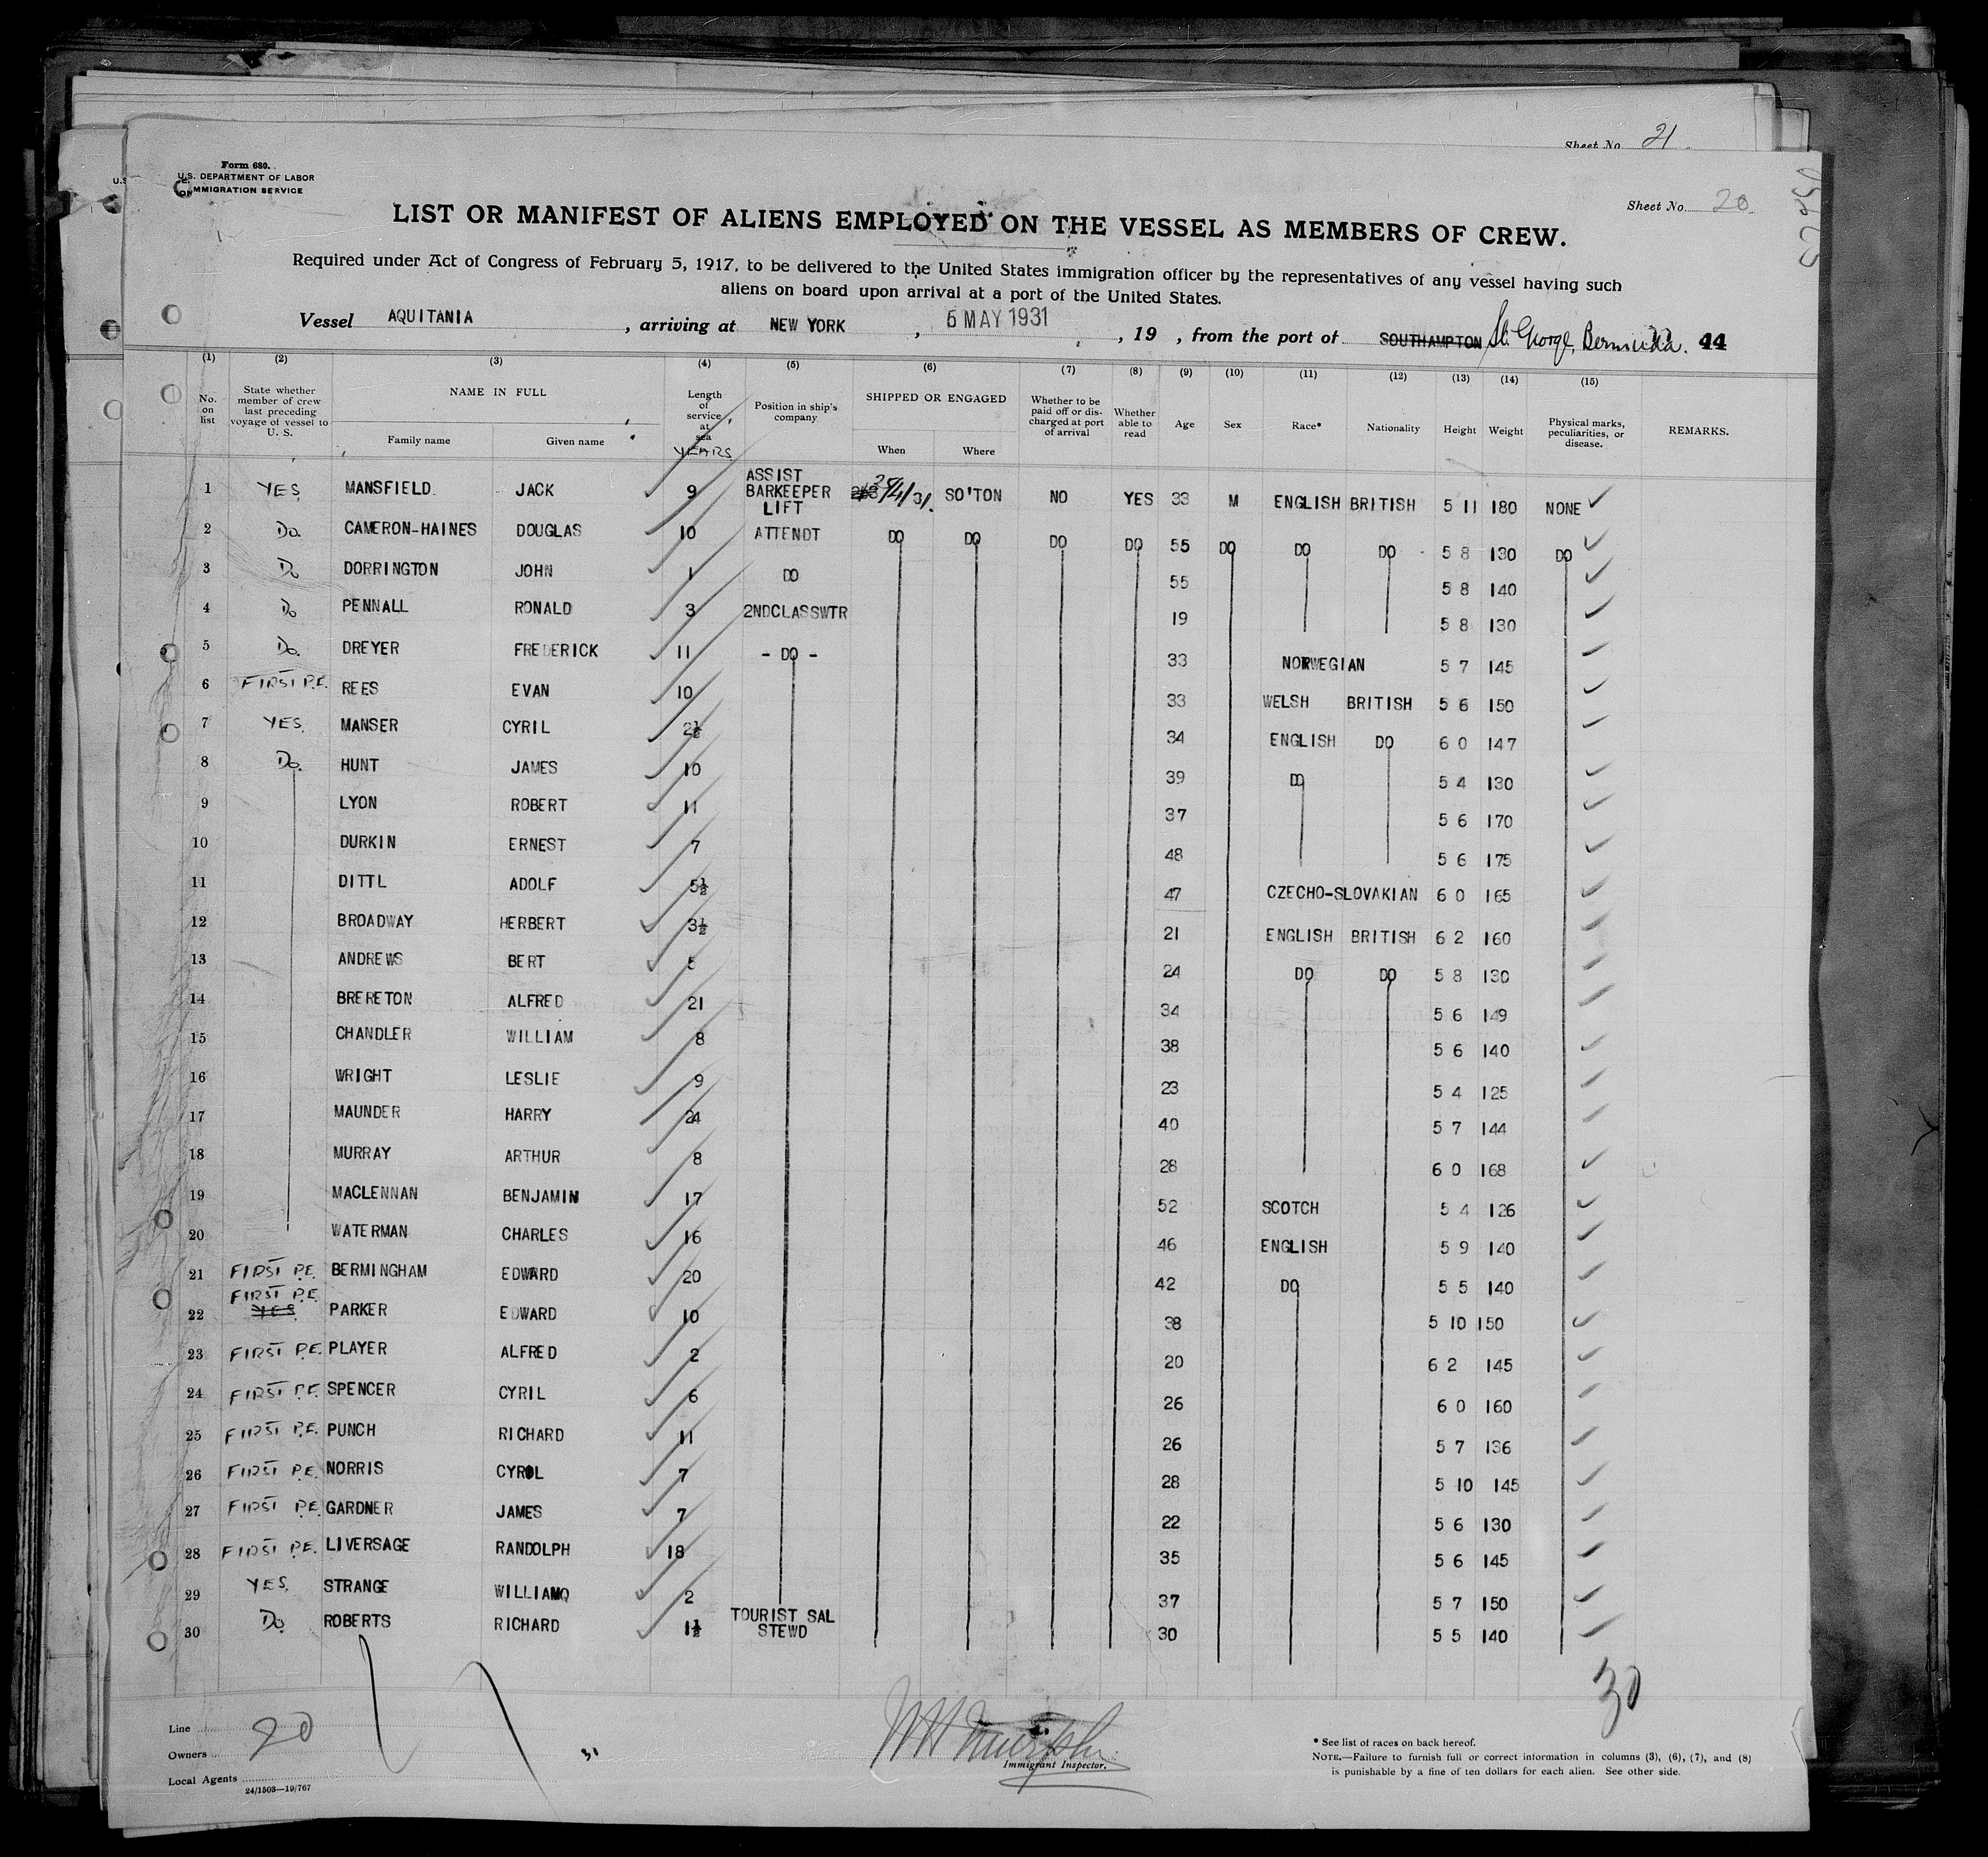 Sheet No. 21
Form 680.
U.S. DEPARTMENT OF LABOR
IMMIGRATION SERVICE
Sheet No. 20
LIST OR MANIFEST OF ALIENS EMPLOYED ON THE VESSEL AS MEMBERS OF CREW.
Required under Act of Congress of February 5, 1917, to be delivered to the United States immigration officer by the representatives of any vessel having such
aliens on board upon arrival at a port of the United States.
Vessel AQUITANIA, arriving at NEW YORK, 6 MAY 1931, 19 , from the port of SOUTHAMPTON St. George, Bermuda. 44
(1) (2) (3) (4) (5) (6) (7) (8) (9) (10) (11) (12) (13) (14) (15)
No. on list State whether member of crew last preceding voyage of vessel to U. S. NAME IN FULL Family name Given name Length of service at sea YEARS Position in ship's company SHIPPED OR ENGAGED When Where Whether to be paid off or discharged at port of arrival Whether able to read Age Sex Race* Nationality Height Weight Physical marks, peculiarities, or disease. REMARKS.
1 YES MANSFIELD JACK 9 ASSIST BARKEEPER 4/31. SO'TON NO YES 33 M ENGLISH BRITISH 5 11 180 NONE
2 Do. CAMERON-HAINES DOUGLAS 10 LIFT ATTENDT DO DO DO DO 55 DO DO DO 5 8 130 DO
3 Do DORRINGTON JOHN 1 DO 55 5 8 140
4 Do PENNALL RONALD 3 2NDCLASSWTR 19 5 8 130
5 Do. DREYER FREDERICK 11 - DO - 33 NORWEGIAN 5 7 145
6 FIRST P.E. REES EVAN 10 33 WELSH BRITISH 5 6 150
7 YES. MANSER CYRIL 2½ 34 ENGLISH DO 6 0 147
8 Do. HUNT JAMES 10 39 DO 5 4 130
9 LYON ROBERT 11 37 5 6 170
10 DURKIN ERNEST 7 48 5 6 175
11 DITTL ADOLF 5½ 47 CZECHO-SLOVAKIAN 6 0 165
12 BROADWAY HERBERT 3½ 21 ENGLISH BRITISH 6 2 160
13 ANDREWS BERT 24 DO DO 5 8 130
14 BRERETON ALFRED 21 34 5 6 149
15 CHANDLER WILLIAM 8 38 5 6 140
16 WRIGHT LESLIE 9 23 5 4 125
17 MAUNDER HARRY 24 40 5 7 144
18 MURRAY ARTHUR 8 28 6 0 168
19 MACLENNAN BENJAMIN 17 52 SCOTCH 5 4 126
20 WATERMAN CHARLES 16 46 ENGLISH 5 9 140
21 FIRST P.E. BERMINGHAM EDWARD 20 42 DO 5 5 140
22 FIRST P.E. YES PARKER EDWARD 10 38 5 10 150
23 FIRST P.E. PLAYER ALFRED 2 20 6 2 145
24 FIRST P.E. SPENCER CYRIL 6 26 6 0 160
25 FIRST P.E. PUNCH RICHARD 11 26 5 7 136
26 FIRST P.E. NORRIS CYROL 7 28 5 10 145
27 FIRST P.E. GARDNER JAMES 7 22 5 6 130
28 FIRST P.E. LIVERSAGE RANDOLPH 18 35 5 6 145
29 YES. STRANGE WILLIAMQ 2 37 5 7 150
30 Do. ROBERTS RICHARD 1½ TOURIST SAL STEWD 30 5 5 140
30
Line
Owners
Local Agents
24/1503—19/767
Immigrant Inspector.
* See list of races on back hereof.
NOTE.—Failure to furnish full or correct information in columns (3), (6), (7), and (8)
is punishable by a fine of ten dollars for each alien. See other side.